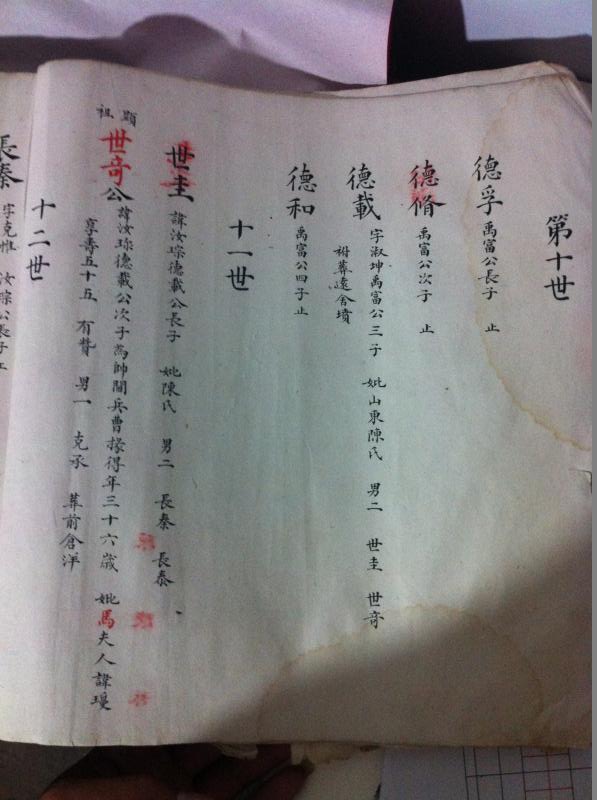 第十世
德孚 禹富公長子 止
德脩 禹富公次子 止
德載 字淑坤禹富公三子 妣山東陳氏 男二 世圭 世奇
祔葬遠倉墳
德和 禹富公四子 止
十一世
世圭 諱汝琮德載公長子 妣陳氏 男二 長秦 長泰
顯祖 世奇公 諱汝琮德載公次子為帥閫兵曹掾得年三十六歲 妣馬夫人諱璦
享壽五十五 有贊 男一 克承 葬前倉洋
十二世
長秦 字克惟 汝琮公長子